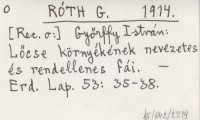 o RÓTH G. 1914.
[Rec. o:] Győrffy István:
Lőcse környékének nevezetes
és rendellenes fái. —
Erd. Lap. 53: 35-38.